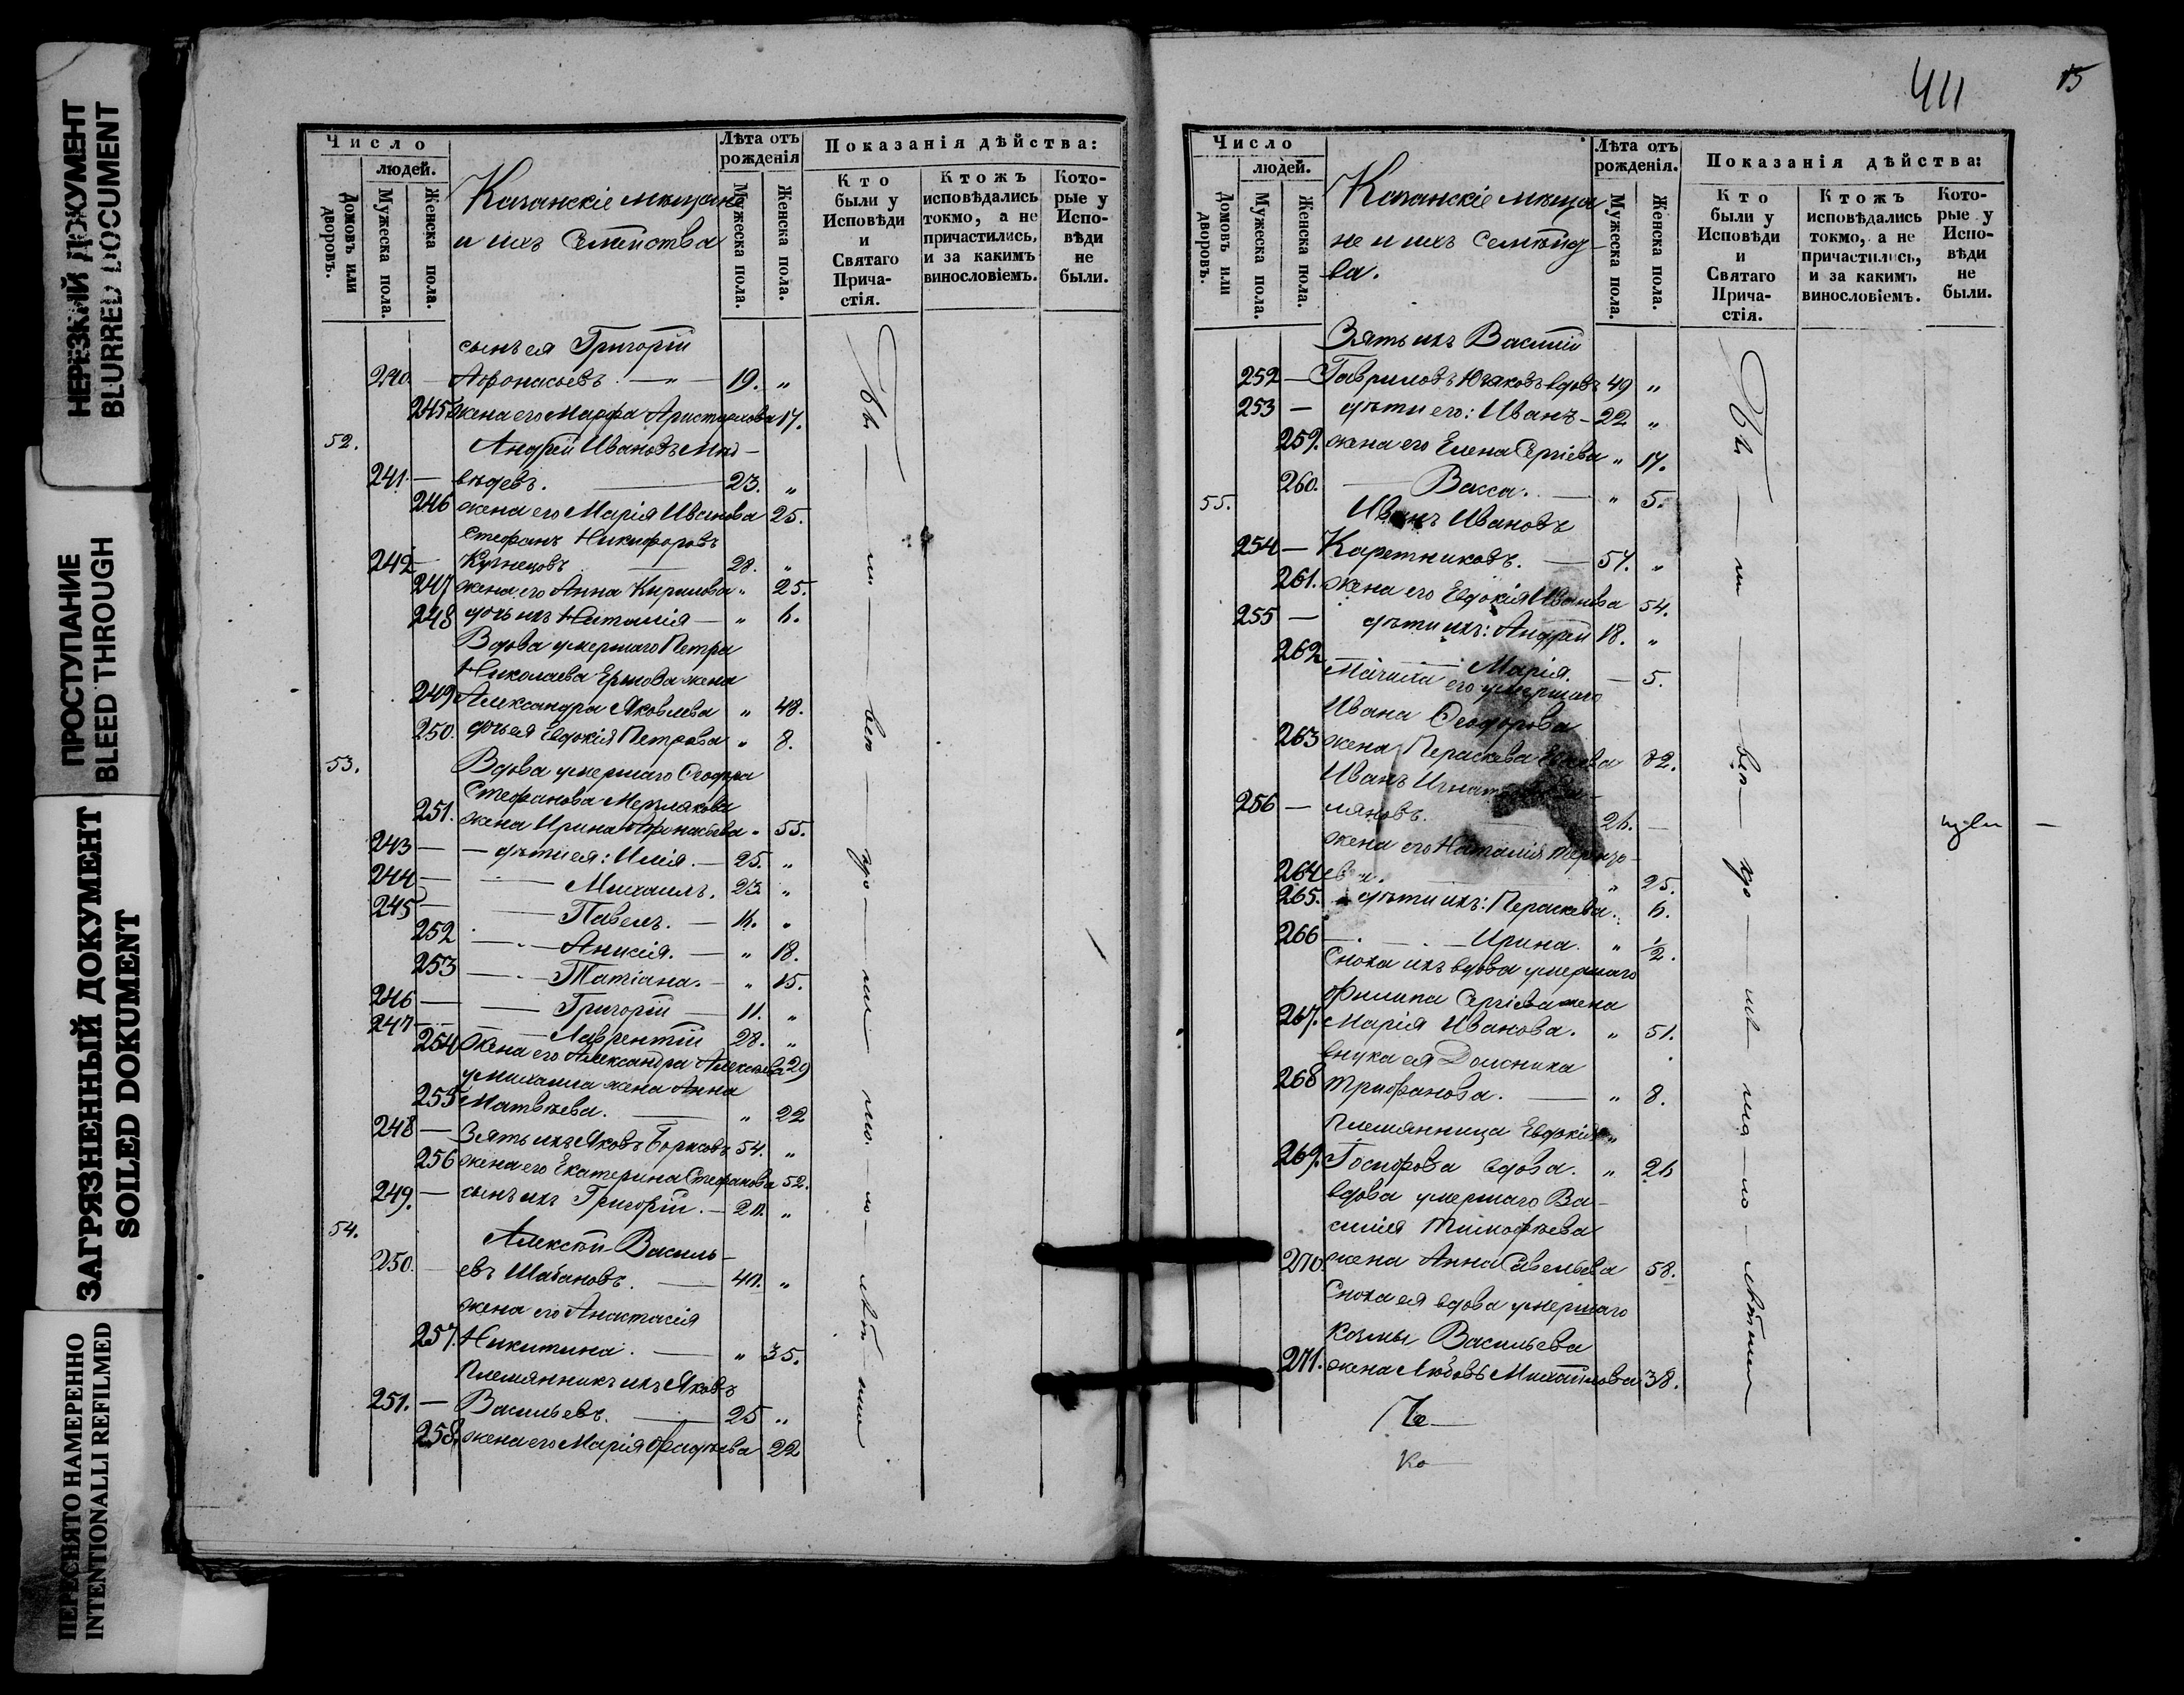 НЕРЕЗКИЙ ДОКУМЕНТ
BLURRED DOCUMENT
ПРОСТУПАНИЕ
BLEED THROUGH
ЗАГРЯЗНЕННЫЙ ДОКУМЕНТ
SOILED DOKUMENT
ПЕРЕСНЯТО НАМЕРЕННО
INTENTIONALLI REFILMED
Число
людей.
Домовъ или дворовъ.
Мужеска пола.
Женска пола.
Казанскіе мещане
и ихъ Семейства
Лѣта отъ рожденія
Мужеска пола.
Женска пола.
Показанія дѣйства:
Кто были у Исповѣди и Святаго Причастія.
Ктожъ исповѣдались токмо, а не причастились, и за какимъ винословіемъ.
Которые у Исповѣди не были.
сынъ ея Григорій
240 — Афонасьевъ — " — 19. "
245 жена его Марфа 17.
52. Андрей Ивановъ Мед-
241 — вѣдевъ. — 23. "
246 жена его Марія Иванова 25.
Стефанъ Никифоровъ
242 — Кузнецовъ — 28. "
247 жена его Анна Кирилова " 25.
248 дочь ихъ Наталія — " 6.
Вдова умершаго Петра
Николаева жена
249 Александра Яковлева " 48.
250. дочь ея Евдокія Петрова " 8.
53. Вдова умершаго Ѳеодора
Стефанова Мерзлякова
251. жена Ирина Афонасьева " 55.
243 — дѣти ея: Илія. — 25. "
244 — Михаилъ. 23. "
245 — Павелъ. —
252 — Анисія. — " 18.
253 — Татіана. — " 15.
246 — Григорій — 11. "
247 — Лаврентій 28. "
254 Жена его Александра Алексѣева 29
у Михаила жена Анна
255 Матвѣева. — " 22
248 — Зять ихъ Яковъ Борисовъ 54. "
256 жена его Екатерина Стефанова 52.
249. — сынъ ихъ Григорій. — "
54. Алексѣй Василь-
250. — евъ Шабановъ. — "
жена его Анастасія
257. Никитина. — " 35.
Племянникъ ихъ Яковъ
251. — Васильевъ. — 25 "
258. жена его Марія 22
411
15
Число
людей.
Домовъ или дворовъ.
Мужеска пола.
Женска пола.
Казанскіе меща
не и ихъ семейст-
ва.
Лѣта отъ рожденія.
Мужеска пола.
Женска пола.
Показанія дѣйства:
Кто были у Исповѣди и Святаго Причастія.
Ктожъ исповѣдались токмо, а не причастились, и за какимъ винословіемъ.
Которые у Исповѣди не были.
Зять ихъ Василій
252 — Гавриловъ вдовъ 49 "
253 — дѣти его: Иванъ — 22 "
259. жена его Елена Сергіева " 17.
260. — Васса. — " 5.
55. Иванъ Ивановъ
254 — Каретниковъ. — 57. "
261. жена его Евдокія Иванова 54.
255 — дѣти ихъ: Андрей 18. "
262 Марія. — 5.
Мачиха его умершаго
Ивана Ѳеодорова
263 жена Параскева 82.
Иванъ
256 — ляновъ. 26. —
жена его Наталія
264 " 25.
265. — дѣти ихъ: Параскева. 6.
266 — Ирина. " 1/2.
Сноха ихъ вдова умершаго
Филипа Сергіева жена
267. Марія Иванова. " 51.
внука ея Домника
268 Трифанова. — " 8.
Племянница Евдокія "
269. вдова. " 26
вдова умершаго Ва-
силія Тимофѣева
270 жена Анна Савельева 58.
Сноха ея вдова умершаго
Козмы Васильева
271. жена Любовь Михайлова 38.